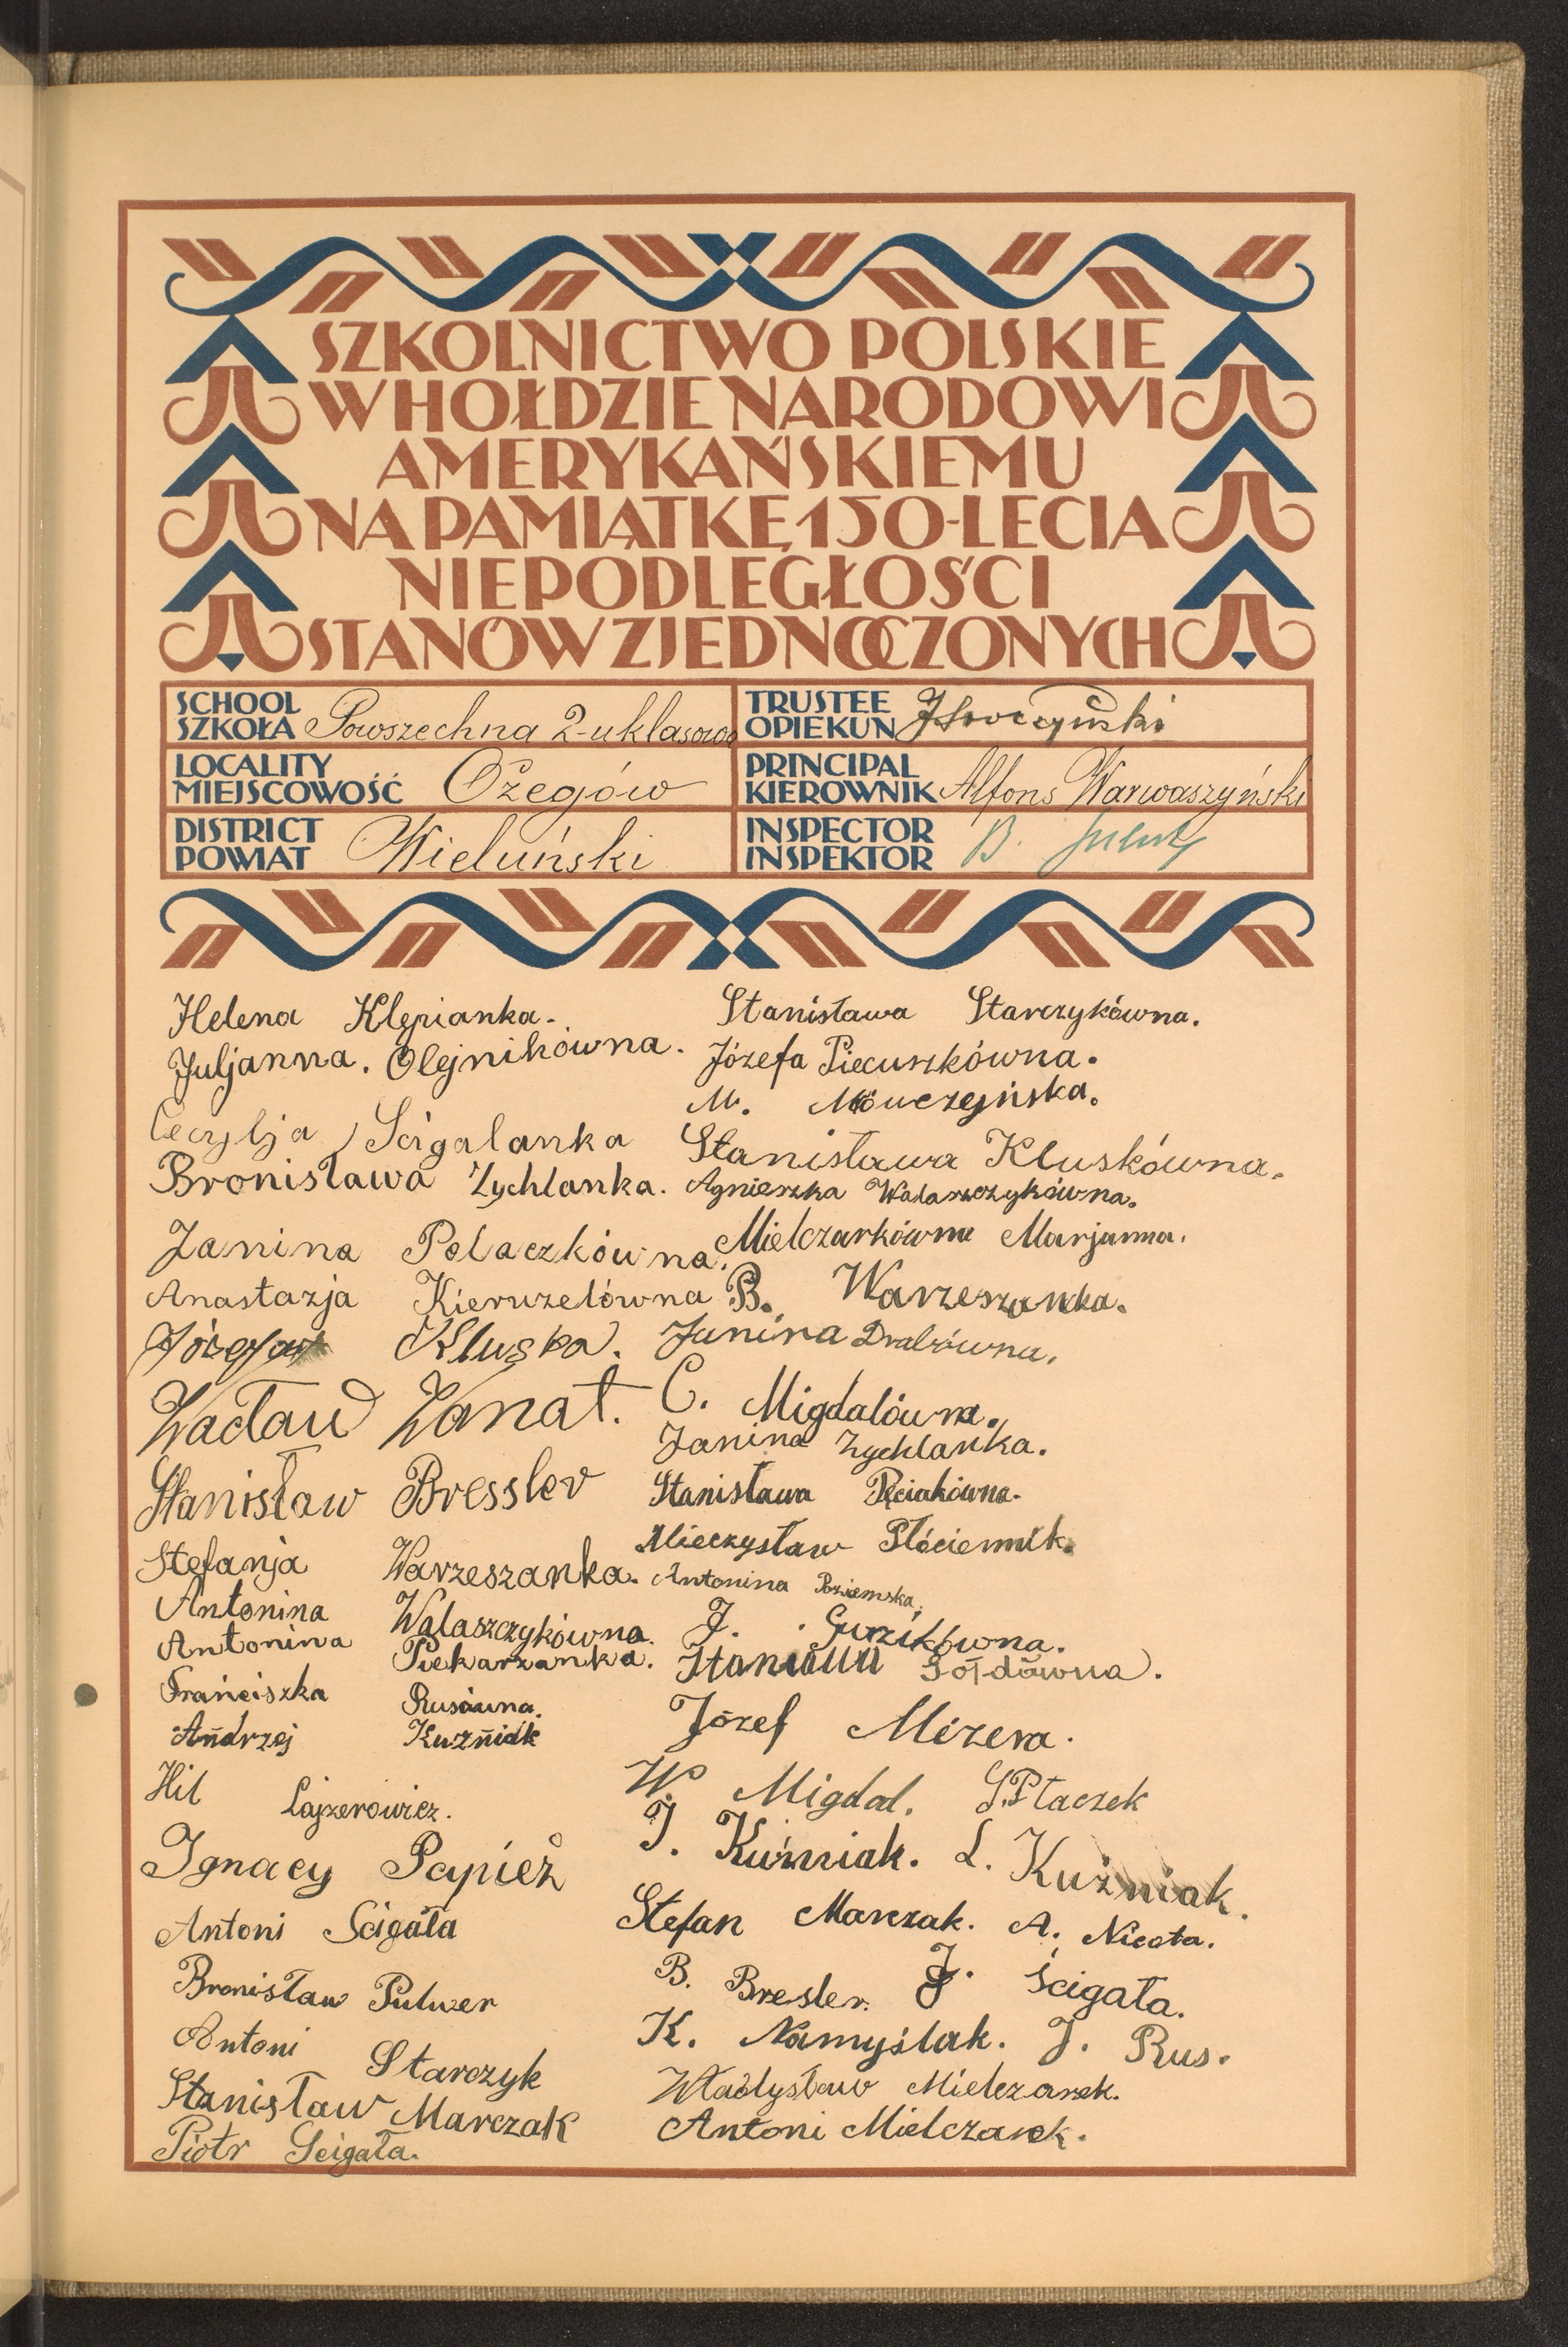 SZKOLNICTWO POLSKIE
W HOŁDZIE NARODOWI
AMERYKAŃSKIEMU
NA PAMIĄTKĘ 150-LECIA
NIEPODLEGŁOŚCI
STANÓW ZJEDNOCZONYCH
SCHOOL
SZKOŁA Powszechna 2-uklasowa
TRUSTEE
OPIEKUN
LOCALITY
MIEJSCOWOŚĆ Ożegów
PRINCIPAL
KIEROWNIK Alfons Warwaszyński
DISTRICT
POWIAT Wieluński
INSPECTOR
INSPEKTOR B.
Helena Klępianka.
Juljanna. Olejnikówna.
Cecylja Ścigalanka
Bronisława Zychlanka.
Janina Polaczkówna.
Anastazja Kieruzelówna
Józefa Kluska.
Wacław Wanat.
Stanisław Bressler
Stefanja Warzeszanka.
Antonina Walaszczykówna.
Antonina Piekarzanka.
Franciszka Rusówna.
Andrzej Kuźniak
Hil Lajzerowicz.
Ignacy Papież
Antoni Scigała
Bronisław Pulwer
Antoni Starczyk
Stanisław Marczak
Piotr Scigała.
Stanisława Starczykówna.
Józefa Piecuszkówna.
M. Mówczyńska.
Stanisława Kluskówna.
Agnieszka Walaszczykówna.
Mielczarkówna Marjanna.
B. Warzeszanka.
Janina Drabówna.
C. Migdalówna.
Janina Zychlanka.
Stanisława Pęciakówna.
Mieczysław Płóciennik.
Antonina Poziemska.
J. Guzikówna.
Gołdówna.
Józef Mizera.
W Migdal. S. Ptaczek
J. Kuźniak. L. Kuźniak.
Stefan Marczak. A. Nicota.
B. Bresler. J. Ścigała.
K. Namyślak. J. Rus.
Władysław Mielczarek.
Antoni Mielczarek.